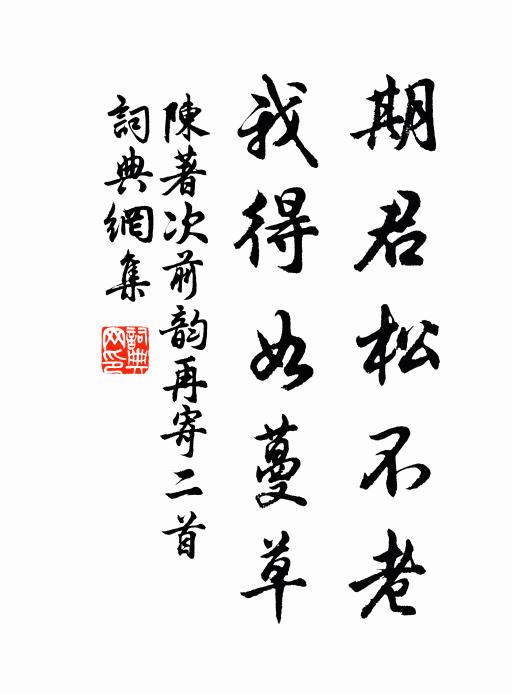 期君松不老
我得如蔓草
陳著次前韵再寄二首
詞典網集
詞典網印